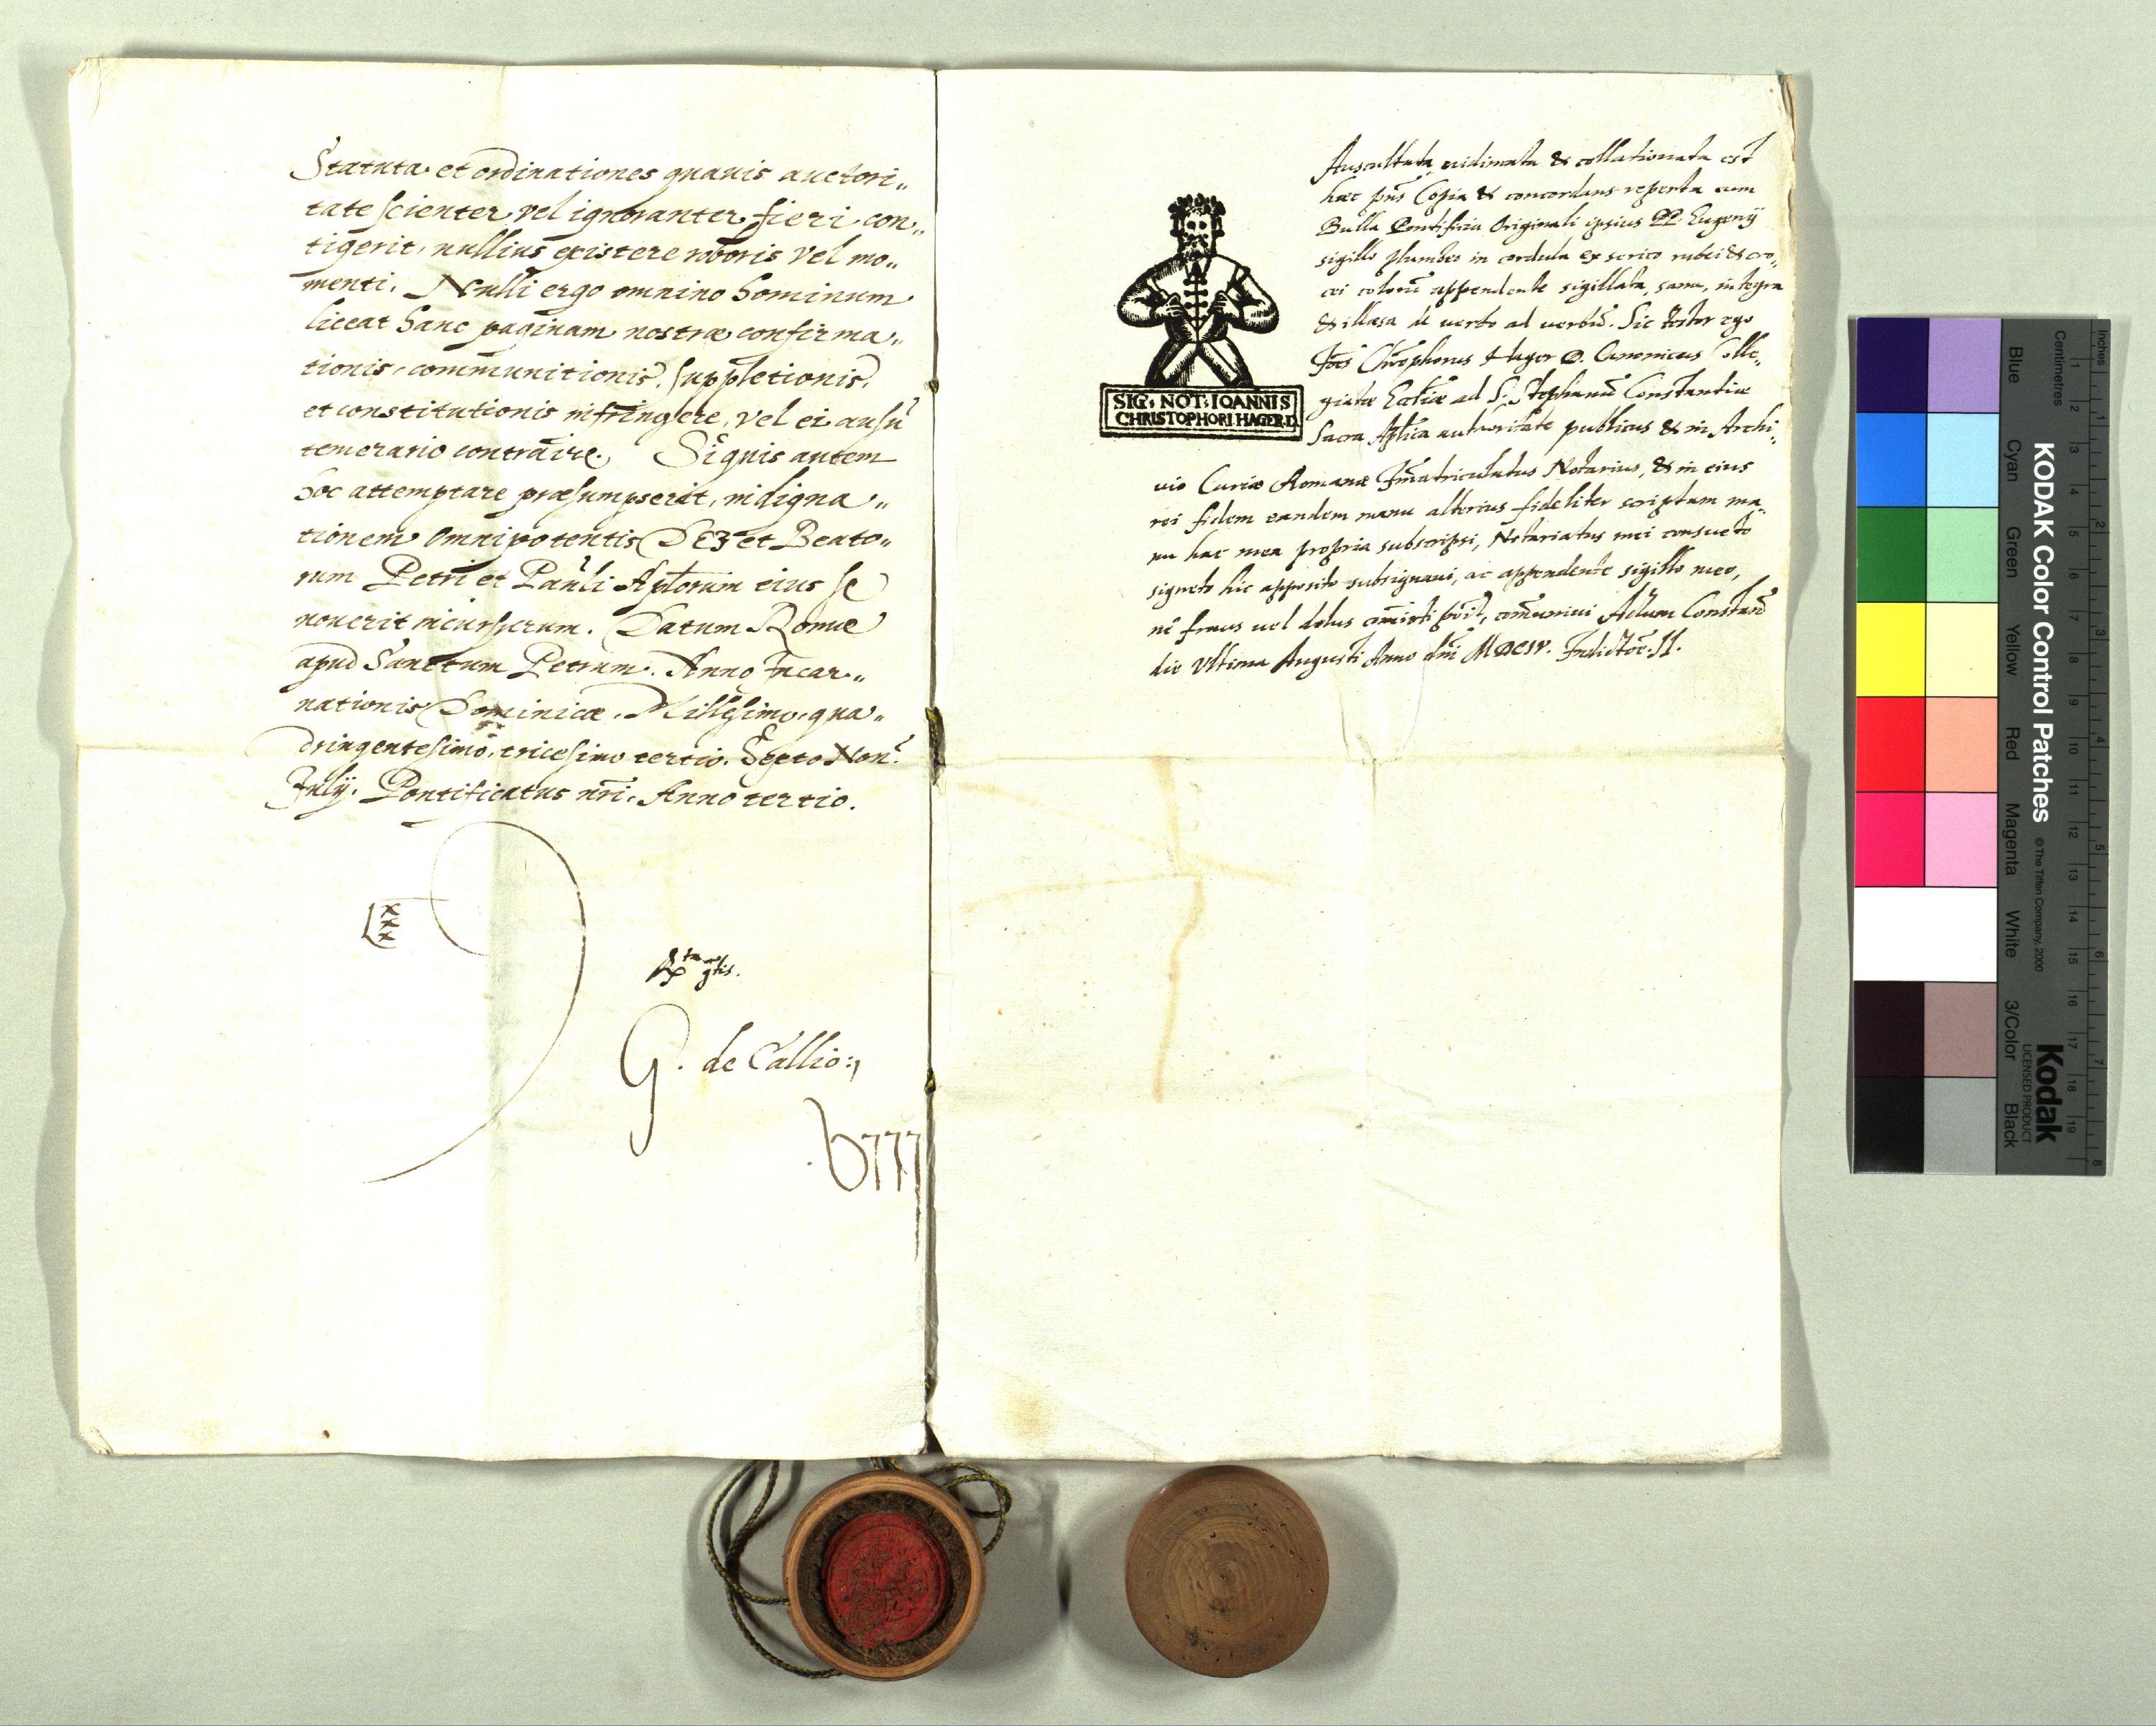 Statuta et ordinationes quauis auctori„
tate scienter vel ignoranter fieri con„
tigerit, nullius existere roboris vel mo„
menti. Nulli ergo omnino hominum
liceat hanc paginam nostræ confirma„
tionis, communitionis, suppletionis,
et constitutionis infringere, vel ei ausu
temerario contraire. Siquis autem
hoc attemptare præsumpserit, indigna„
tionem Omnipotentis DEI et Beato„
rum Petri et Pauli Aptorum eius se
nouerit incursurum. Datum Romæ
apud Sanctum Petrum. Anno Incar„
nationis Dominicæ. Millesimo, qua„
dringentesimo, tricesimo tertio. Septo Non.
Julij. Pontificatus nri. Anno tertio.
xxx
Rta gtis.
G. de Callio:,
Auscultata, uidimata & collationata est
hæc pns Copia & concordans reperta cum
Bulla Pontificia Originali ipsius PP. Eugenij
sigillo plumbeo in cordula ex serico rubei & cro„
cei coloru appendente sigillata, sana, integra
& illæsa de uerbo ad uerbu. Sic testor ego
Joes Chrophorus Hager D. Canonicus Colle„
giatæ Eccliæ ad S. Stephanu Constantiæ
Sacra Aplica authoritate publicus & in Archi„
SIG: NOT: IOANNIS
CHRISTOPHORI HAGER.D.
uio Curiæ Romanæ Jmatriculatus Notarius, & in eius
rei fidem eandem manu alterius fideliter scriptam ma„
nu hac mea propria subscripsi, Notariatus mei consueto
signeto hic apposito subsignaui, ac appendente sigillo meo,
ne fraus uel dolus comitti poit, comuniui Actum Constan
die Vltima Augusti Anno dni MDCIV. Indictoe. II.
KODAK Color Control Patches
© The Tiffen Company, 2000
Kodak
LICENSED PRODUCT
Inches
Centimetres
Blue Cyan Green Yellow Red Magenta White 3/Color Black
1 2 3 4 5 6 7 8 9 10 11 12 13 14 15 16 17 18 19
1 2 3 4 5 6 7 8